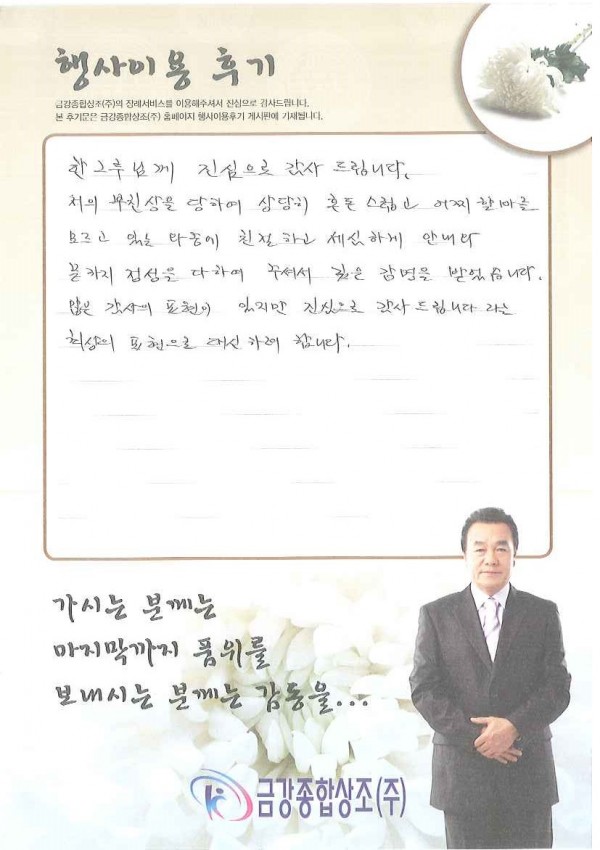 행사이용 후기
금강종합상조(주)의 장례서비스를 이용해주셔서 진심으로 감사드립니다.
본 후기문은 금강종합상조(주) 홈페이지 행사이용후기 게시판에 기재됩니다.
한그루님께 진심으로 감사 드립니다.
저의 부친상을 당하여 상당히 혼돈 스럽고 어찌 할바를
모르고 있는 와중에 친절하고 세심하게 안내와
끝까지 정성을 다하여 주셔서 깊은 감명을 받았습니다.
많은 감사의 표현이 있지만 진심으로 감사드립니다 라는
최상의 표현으로 대신 하려 합니다.
가시는 분께는
마지막까지 품위를
보내시는 분께는 감동을...
금강종합상조(주)